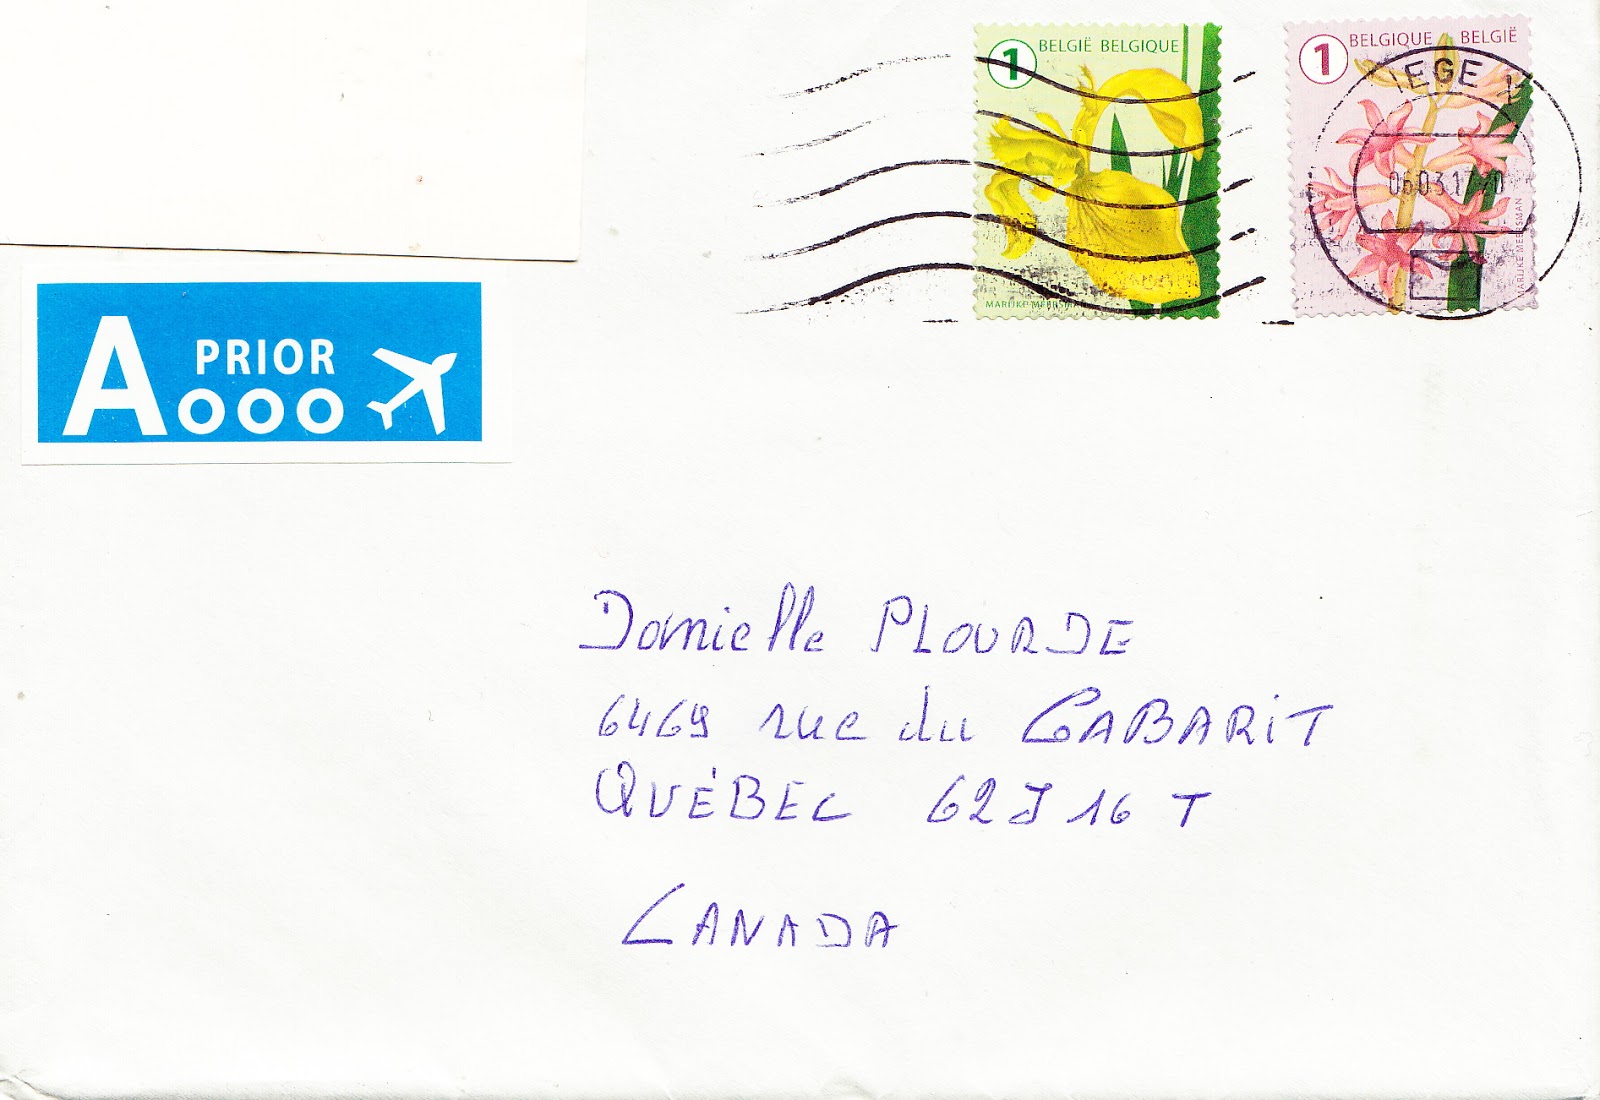 1 BELGIË BELGIQUE
MARIJKE MEERSMAN
1 BELGIQUE BELGIË
MARIJKE MEERSMAN
IEGE 1
06.03.17
A PRIOR
Danielle PLOURDE
6469 rue du GABARiT
QUÉBEC 62J 16 T
CANADA